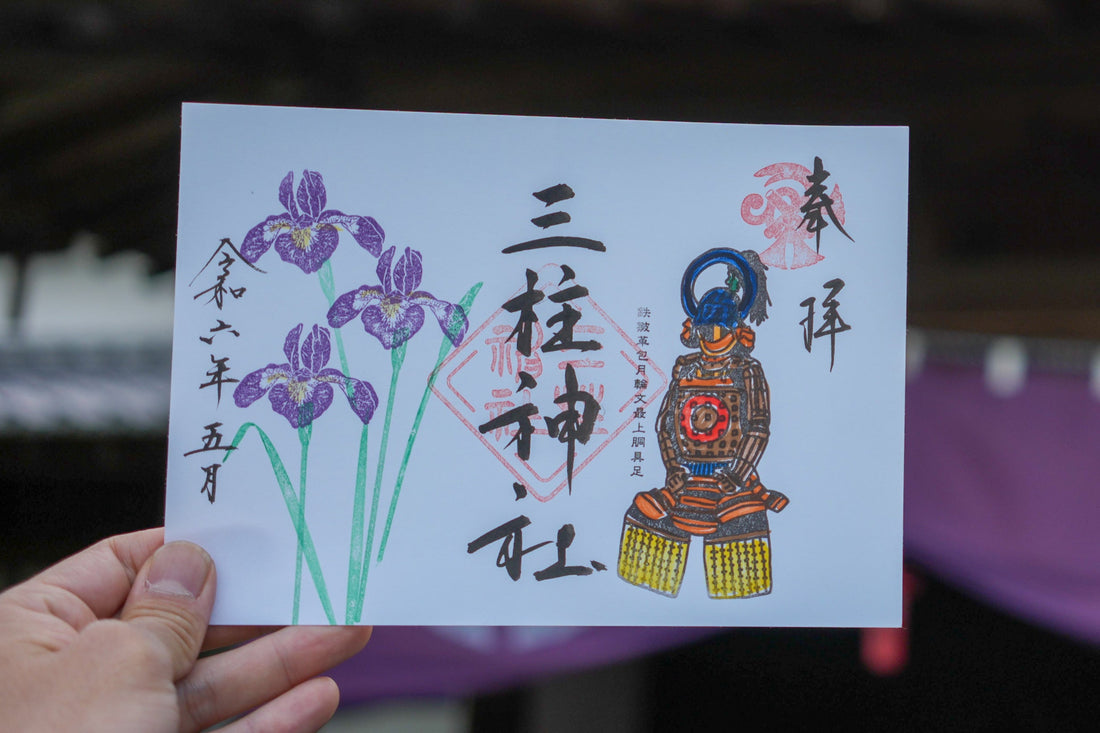 奉拝
鉄皺革包月輪文最上胴具足
三柱神社
三柱
神社
令和六年五月